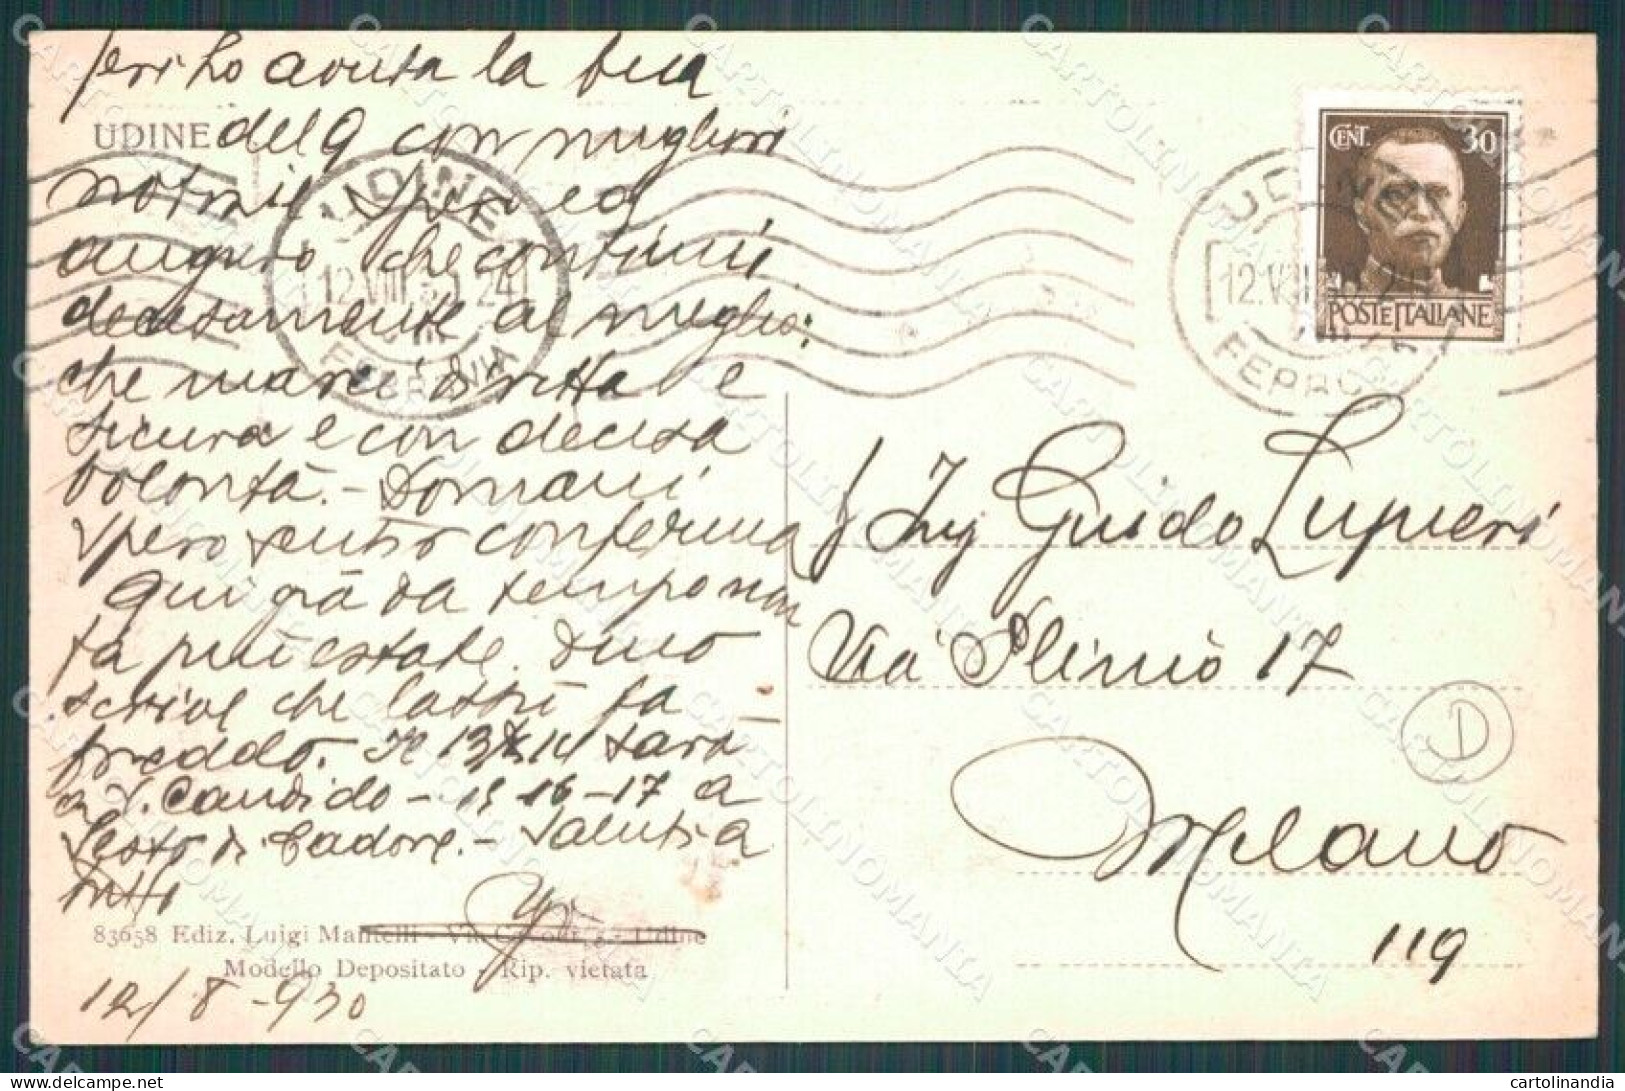 Jeri ho avuta la tua
UDINE
del 9 con migliori
notizie. Spero ed
auguro che continui
decisamente al meglio;
che marci diritta e
sicura e con decisa
volontà. - Domani
spero sentir conferma
Qui già da tempo non
fa più estate. Dino
scrive che lassù fa
freddo. Il 13 14 sarà
a S. Candido - 15 16 - 17 a
Sesto di Cadore. - Saluti a
tutti
83658 Ediz. Luigi Mantelli - Via Cavour, 5 - Udine
Modello Depositato - Rip. vietata
12/8 - 930
UDINE
12.VIII 30 24
FERROVIA
UDINE
12.VIII 30 24
FERROVIA
CENT. 30
POSTE ITALIANE
Ing Guido Lupieri
Via Plinio 17
Milano
119
D
CARTOLINOMANIA
cartolinandia